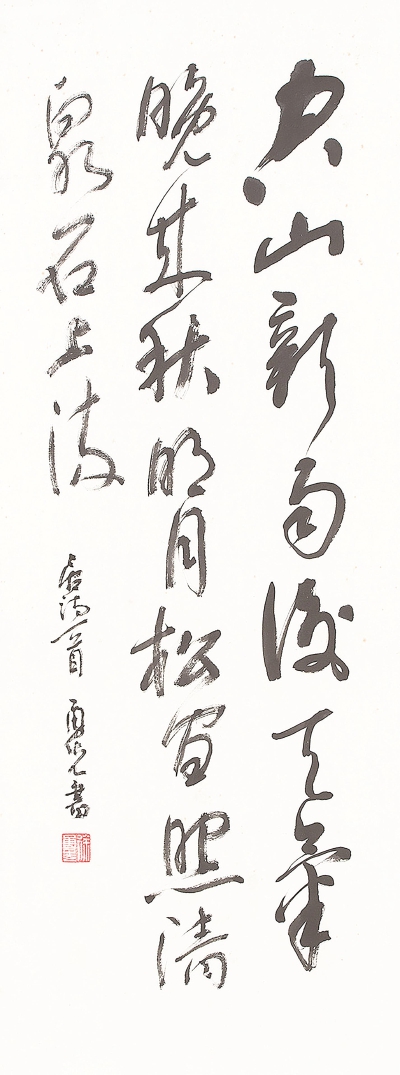 空山新雨後天氣
晚來秋明月松間照清
泉石上流
唐詩一首 書